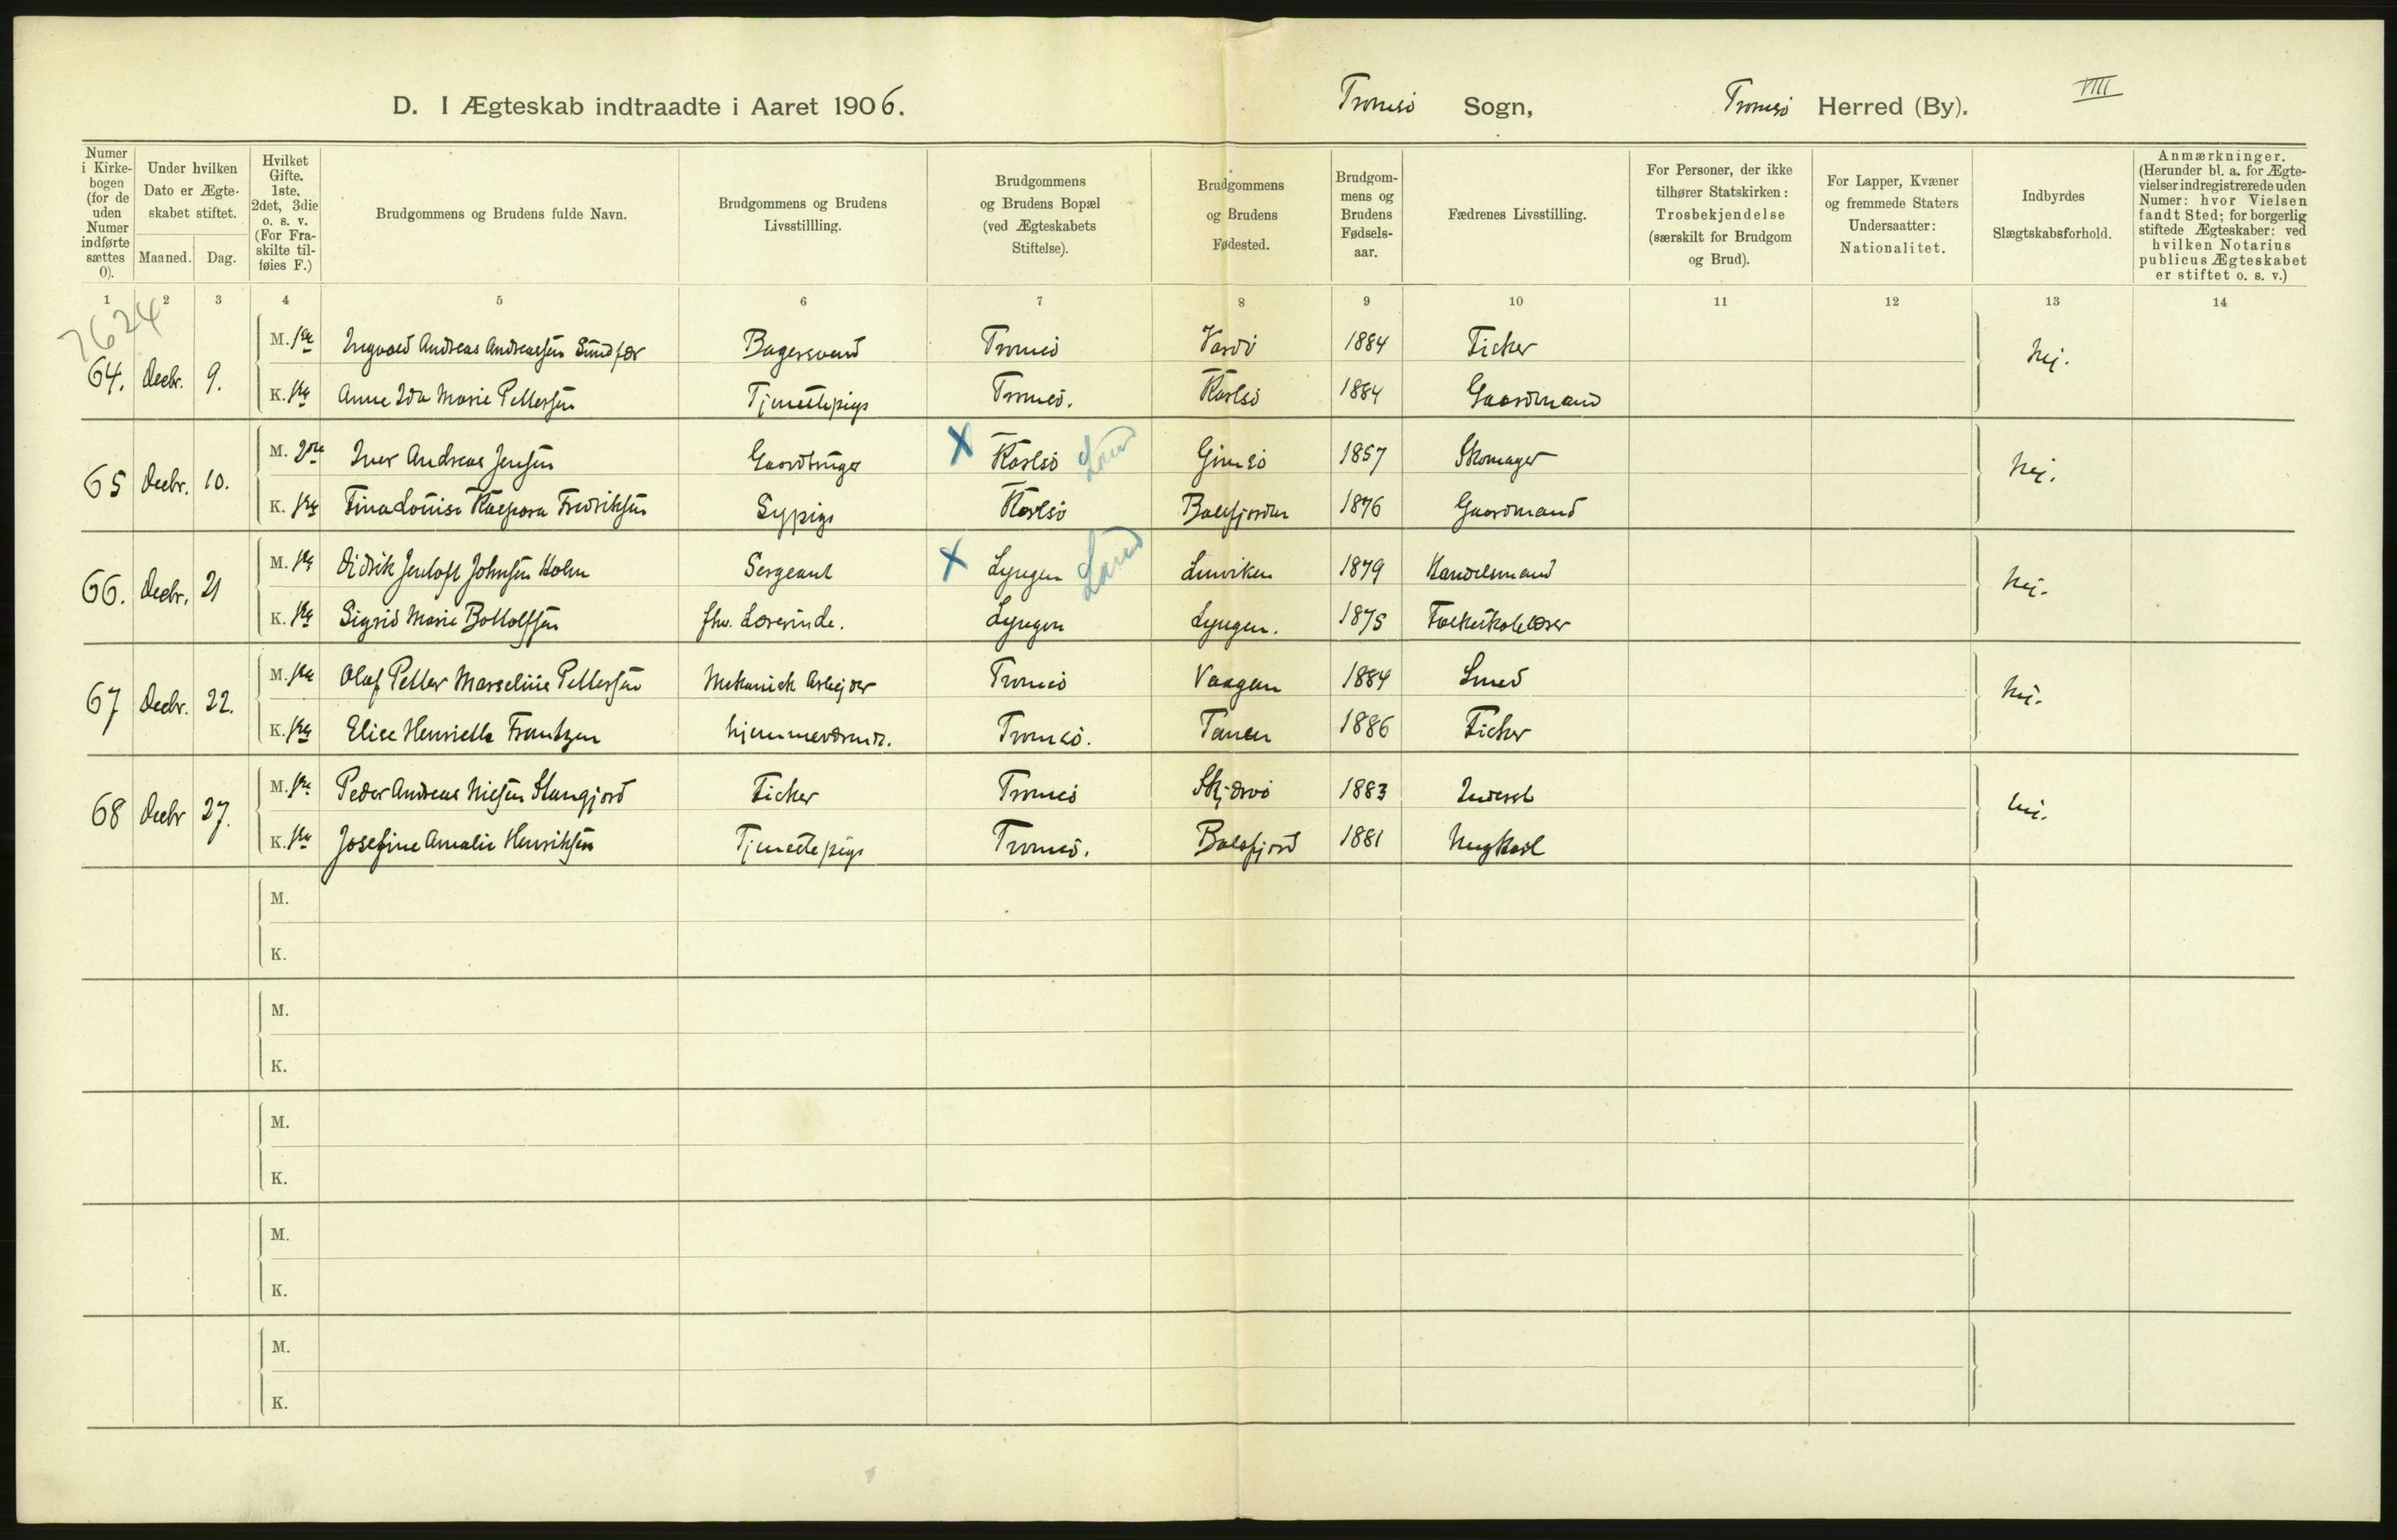 D. I Ægteskab indtraadte i Aaret 1906. Tromsö Sogn, Tromsö Herred (By). VIII
Numer i Kirkebogen (for de uden Numer indførte sættes 0).
Under hvilken Dato er Ægteskabet stiftet.
Maaned. Dag.
Hvilket Gifte. 1ste, 2det, 3die o. s. v. (For Fraskilte tilføies F.)
Brudgommens og Brudens fulde Navn.
Brudgommens og Brudens Livsstillling.
Brudgommens og Brudens Bopæl (ved Ægteskabets Stiftelse).
Brudgommens og Brudens Fødested.
Brudgommens og Brudens Fødselsaar.
Fædrenes Livsstilling.
For Personer, der ikke tilhører Statskirken: Trosbekjendelse (særskilt for Brudgom og Brud).
For Lapper, Kvæner og fremmede Staters Undersaatter: Nationalitet.
Indbyrdes Slægtskabsforhold.
Anmærkninger. (Herunder bl. a. for Ægtevielser indregistrerede uden Numer: hvor Vielsen fandt Sted; for borgerlig stiftede Ægteskaber: ved hvilken Notarius publicus Ægteskabet er stiftet o. s. v.)
1 2 3 4 5 6 7 8 9 10 11 12 13 14
7624
64. Decbr. 9. M. 1ste Ingvald Andreas Andreassen Sundfær Bagersvend Tromsö Vardö 1884 Fisker Nei.
K. 1ste Anne Ida Marie Pettersen Tjenestepige Tromsö. Karlsö 1884 Gaardmand
65 Decbr. 10. M. 2den Iver Andreas Jensen Gaardbruger X Karlsö Land Gimsö 1857 Skomager Nei.
K. 1ste Tina Louise Kaspara Fredriksen Sypige Karlsö Balsfjorden 1876 Gaardmand
66. Decbr. 21 M. 1ste Didrik Jentoft Johnsen Holm Sergeant X Lyngen Land Lenviken 1879 Handelsmand Nei.
K. 1ste Sigrid Marie Bottolfsen fhv. Lærerinde. Lyngen Lyngen. 1875 Folkeskolelærer
67 Decbr. 22. M. 1ste Olaf Petter Marselius Pettersen Mekanisk Arbejder Tromsö Vaagan 1884 Smed Nei.
K. 1ste Elise Henriette Frantzen hjemmeværende. Tromsö. Tanen 1886 Fisker
68 Decbr 27. M. 1ste Peder Andreas Nilsen Stangjord Fisker Tromsö Skjærvö 1883 Inderst Nei.
K. 1ste Josefine Amalie Henriksen Tjenestepige Tromsö. Balsfjord 1881 Ungkarl
M.
K.
M.
K.
M.
K.
M.
K.
M.
K.